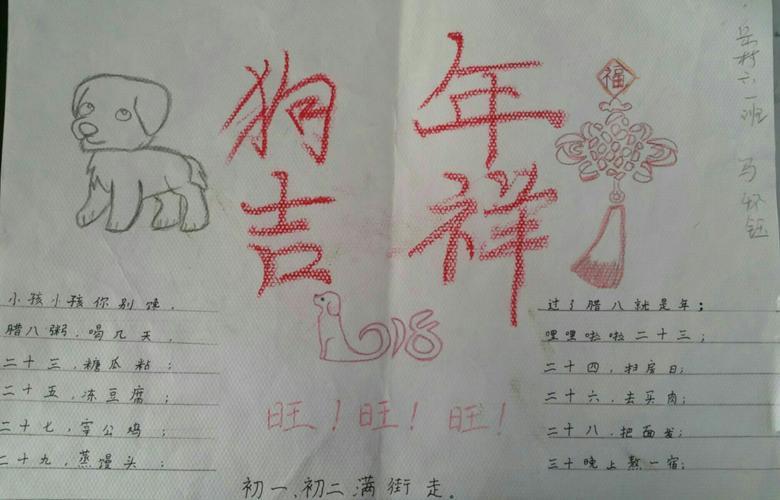 狗年
吉祥
福
岳村六一班 马怀钰
2018
旺！旺！旺！
小孩小孩你别馋，
过了腊八就是年；
腊八粥，喝几天，
哩哩啦啦二十三；
二十三，糖瓜粘；
二十四，扫房日；
二十五，冻豆腐；
二十六，去买肉；
二十七，宰公鸡；
二十八，把面发；
二十九，蒸馒头；
三十晚上熬一宿；
初一、初二满街走。